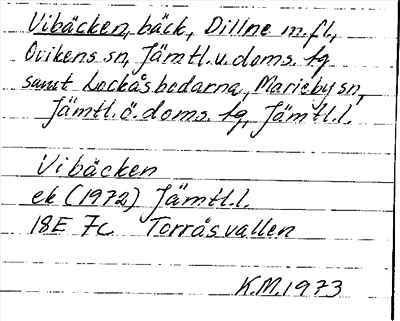 Vibäcken, bäck, Dillne m.fl.,
Ovikens sn, Jämtl.u.doms. tg
samt Lockåsbodarna, Marieby sn,
Jämtl.ö.doms. tg, Jämtl.l.
Vibäcken
ek (1972) Jämtl.l.
18E 7c Torråsvallen
K.M.1973